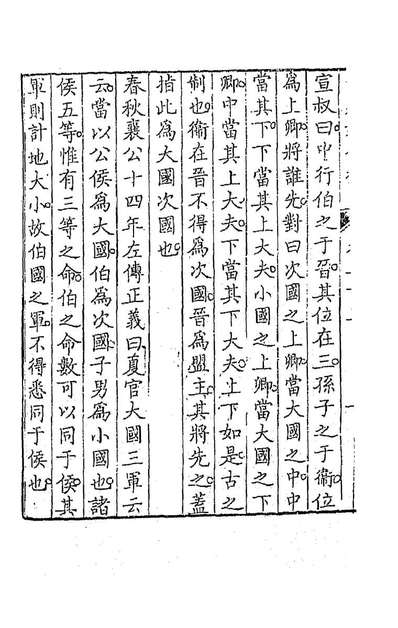 宣叔曰中行伯之于晉其位在三孫子之于衞位
爲上卿將誰先對曰次國之上卿當大國之中中
當其下下當其上大夫小國之上卿當大國之下
卿中當其上大夫下當其下大夫上下如是古之
制也衞在晉不得爲次國晉爲盟主其將先之蓋
指此爲大國次國也
春秋襄公十四年左傳正義曰夏官大國三軍云
云當以公侯爲大國伯爲次國子男爲小國也諸
侯五等惟有三等之命伯之命數可以同于侯其
軍則計地大小故伯國之軍不得悉同于侯也